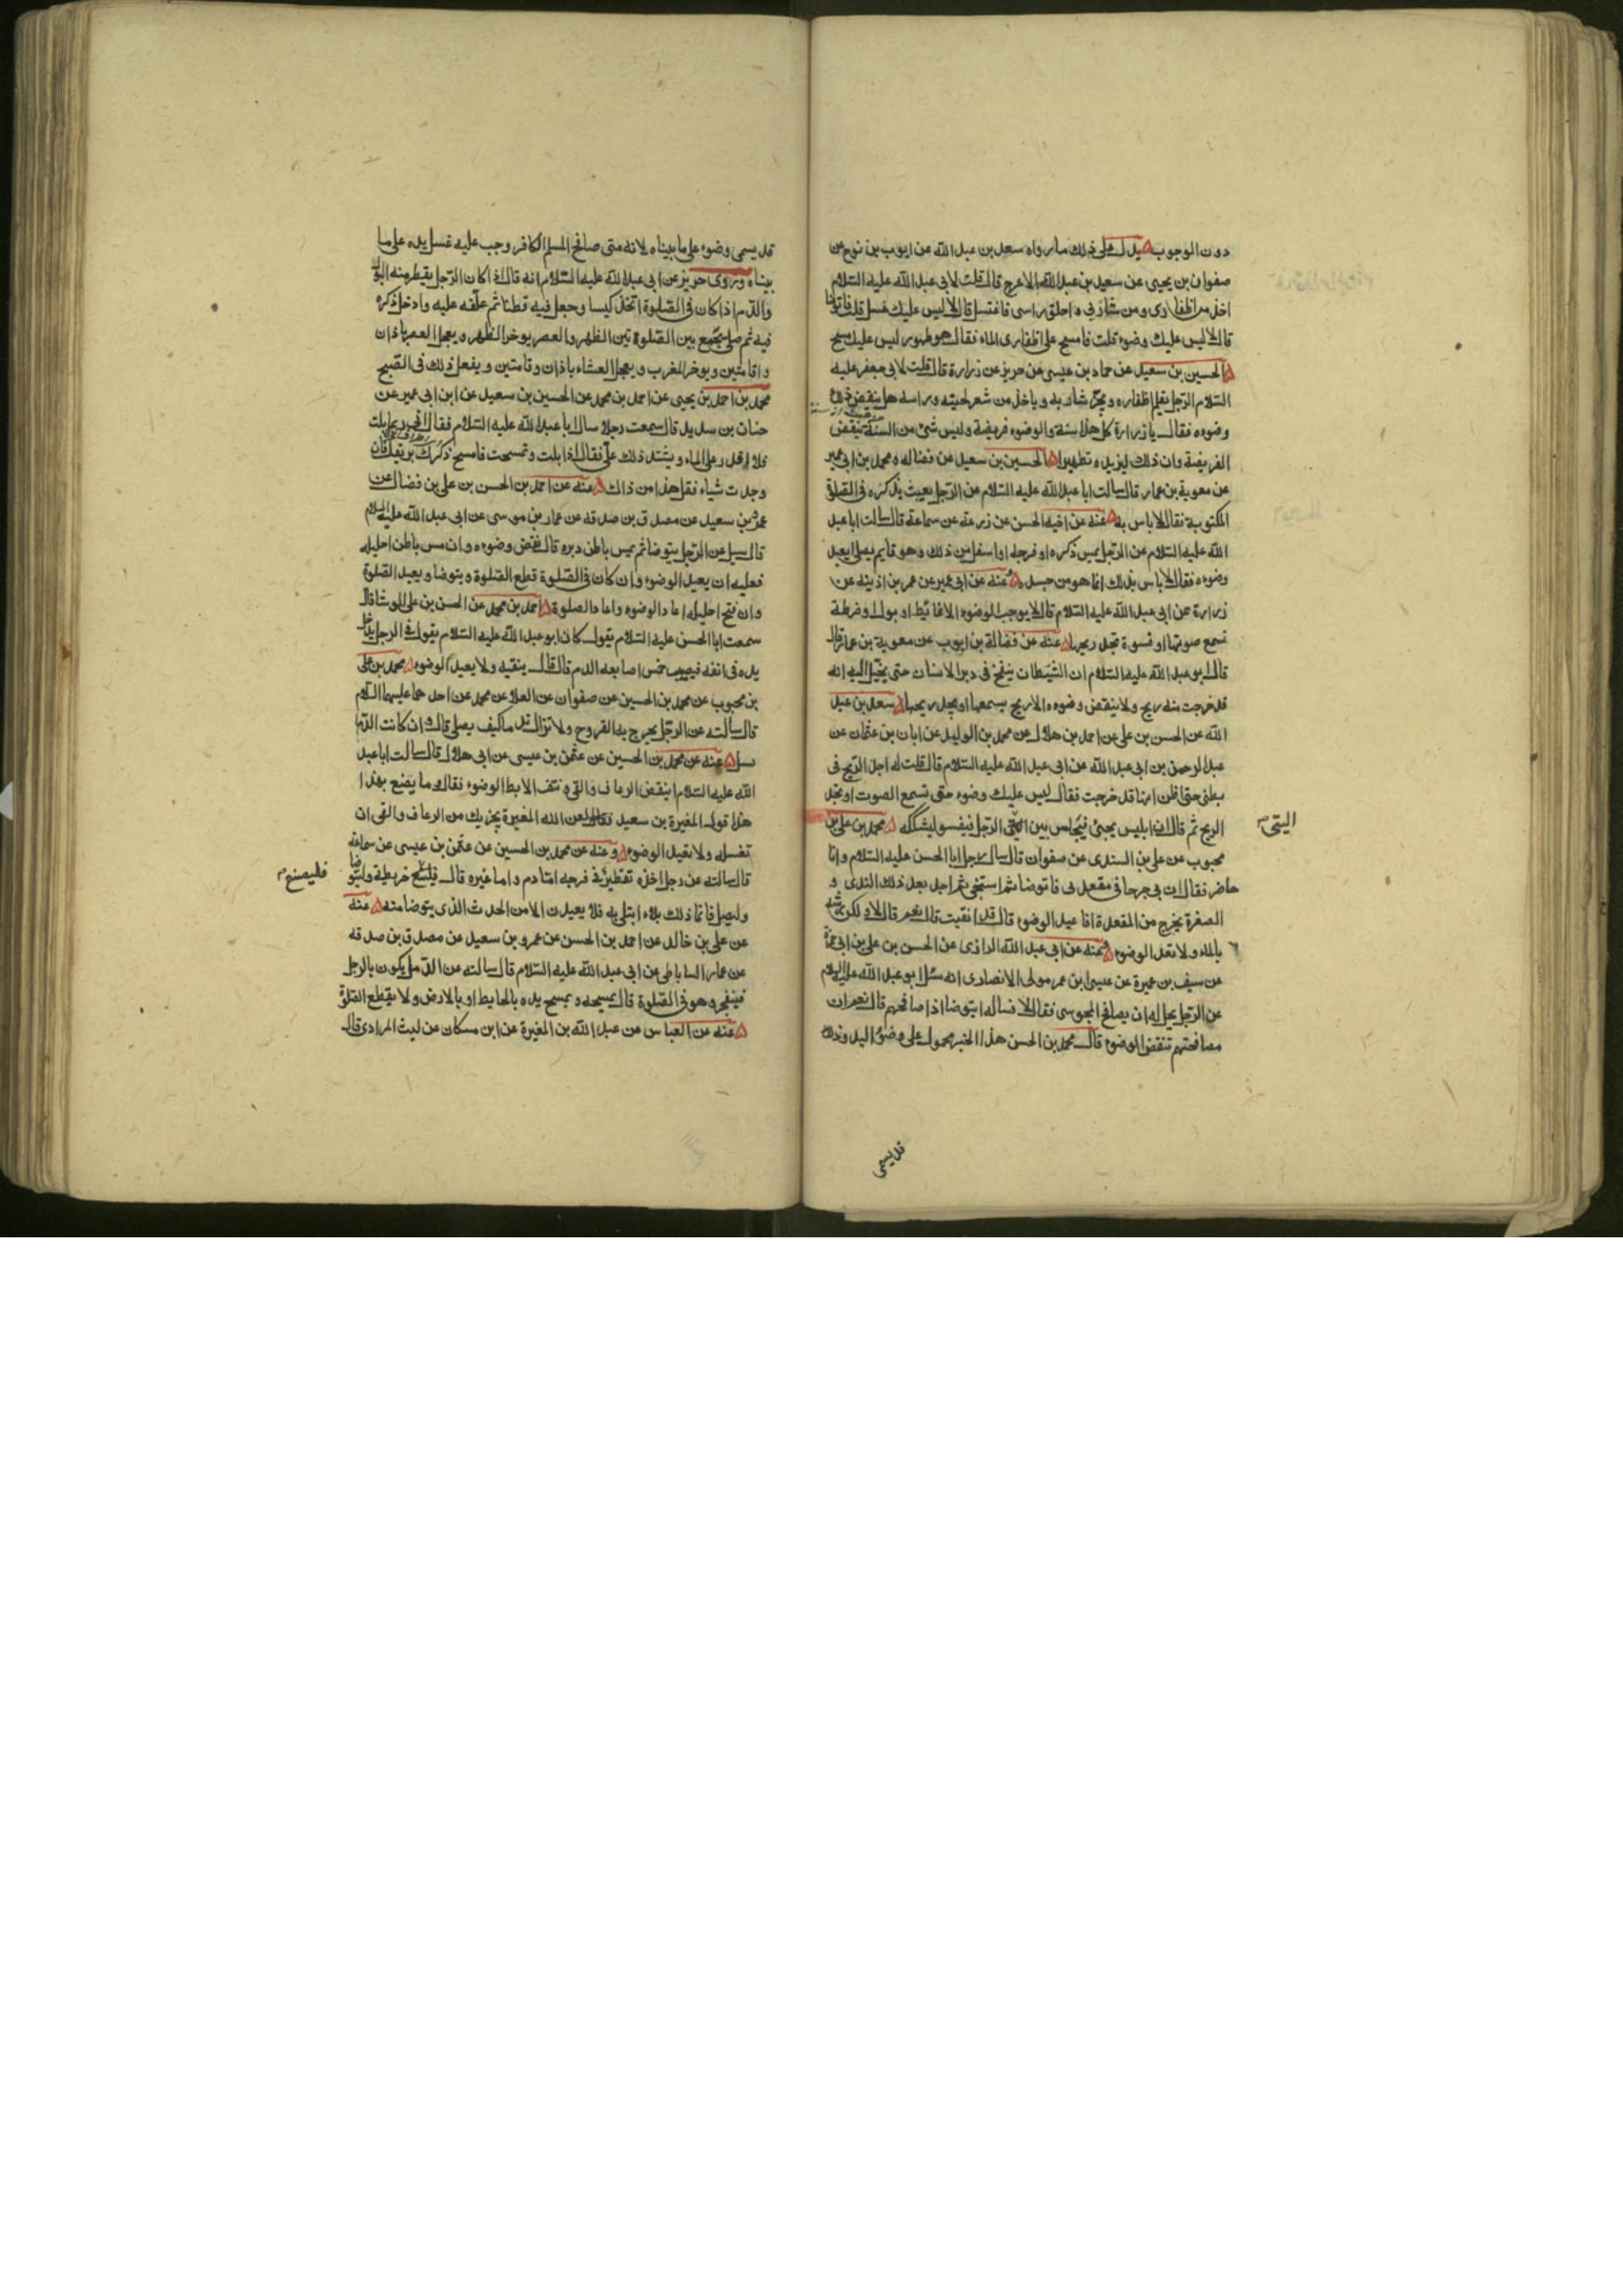 دون الوجوب يدل على ذلك ما رواه سعد بن عبد الله عن ايوب بن نوح عن
صفوان بن يحيى عن سعيد بن عبد الله الاعرج قال قلت لابى عبد الله عليه السلام
اخذ من اظفارى ومن شاربى واحلق راسى فاغتسل قال لا ليس عليك غسل قلت فاتوضا
قال لا ليس عليك وضوء قلت فامسح على اظفارى الماء فقال هو طهور ليس عليك مسح
الحسين بن سعيد عن حماد بن عيسى عن حريز عن زرارة قال قلت لابى جعفر عليه
السلام الرجل يقلم اظفاره ويجز شاربه وياخذ من شعر لحيته وراسه هل ينقض ذلك
وضوءه فقال يا زرارة كل هذا سنة والوضوء فريضة وليس شئ من السنة ينقض
الفريضة وان ذلك ليزيده تطهيرا الحسين بن سعيد عن فضاله ومحمد بن ابى عمير
عن معوية بن عمار قال سالت ابا عبد الله عليه السلام عن الرجل يعبث بذكره فى الصلوة
المكتوبة فقال لا باس به عنه عن اخيه الحسن عن زرعة عن سماعة قال سالت ابا عبد
الله عليه السلام عن الرجل يمس ذكره او فرجه او اسفل من ذلك وهو قايم يصلى ايعيد
وضوءه فقال لا باس بذلك انما هو من جسده عنه عن ابى عمير عن عمر بن اذينه عن
زرارة عن ابى عبد الله عليه السلام قال لا يوجب الوضوء الا غائط او بول او ضرطة
تسمع صوتها او فسوة تجد ريحها عنه عن فضالة بن ايوب عن معوية بن عمار قال
قال ابو عبد الله عليه السلام ان الشيطان ينفخ فى دبر الانسان حتى يخيل اليه انه
قد خرجت منه ريح ولا ينقض وضوءه الا ريح يسمعها او يجد ريحها سعد بن عبد
الله عن الحسن بن على عن احمد بن هلال عن محمد بن الوليد عن ابان بن عثمان عن
عبد الرحمن بن ابى عبد الله عن ابى عبد الله عليه السلام قال قلت له اجد الريح فى
بطنى حتى اظن انها قد خرجت فقال ليس عليك وضوء حتى تسمع الصوت او تجد
الريح ثم قال ان ابليس يجئ فيجلس بين الرجل فيفسو ليشككه محمد بن على بن
اليتى
محبوب عن على بن السندى عن صفوان قال سال رجل ابا الحسن عليه السلام وانا
حاضر فقال ان بى جرحا فى مقعدتى فاتوضا ثم استنجى ثم اجد بعد ذلك الندى و
الصفرة يخرج من المقعدة افاعيد الوضوء قال قد انقيت قال نعم قال لا ولكن رشه
بالماء ولا تعد الوضوء عنه عن ابى عبد الله الرازى عن الحسن بن على بن ابى حمزة
عن سيف بن عميرة عن عيسى ابن عمر مولى الانصارى انه سئل ابو عبد الله عليه السلام
عن الرجل يحل له ان يصافح المجوسى فقال لا فساله ايتوضا اذا صافحهم قال نعم ان
مصافحتهم تنقض الوضوء قال محمد بن الحسن هذا الخبر محمول على وضوء اليد وذلك
قد يسمى
قد يسمى وضوء على ما بيناه لانه متى صافح المسلم الكافر وجب عليه غسل يده على ما
بيناه وروى حريز عن ابى عبد الله عليه السلام انه قال اذا كان الرجل يقطر منه البول
والدم اذا كان فى الصلوة اتخذ كيسا وجعل فيه قطنا ثم علقه عليه وادخل ذكره
فيه ثم صلى يجمع بين الصلوة بين الظهر والعصر يوخر الظهر ويعجل العصر باذان
واقامتين ويوخر المغرب ويعجل العشاء باذان واقامتين ويفعل ذلك فى الصبح
محمد بن احمد بن يحيى عن احمد بن محمد عن الحسين بن سعيد عن ابن ابى عمير عن
حنان بن سدير قال سمعت رجلا سال ابا عبد الله عليه السلام فقال انى ربما بلت
فلا اقدر على الماء ويشتد ذلك على فقال اذا بلت وتمسحت فامسح ذكرك بريقك فان
وجدت شياء فقل هذا من ذاك عنه عن احمد بن الحسن بن على بن فضال عن
عمرو بن سعيد عن مصدق بن صدقه عن عمار بن موسى عن ابى عبد الله عليه السلام
قال سيل عن الرجل يتوضا ثم يمس باطن دبره قال نقض وضوءه وان مس باطن احليله
فعليه ان يعيد الوضوء وان كان فى الصلوة قطع الصلوة ويتوضا ويعيد الصلوة
وان فتح احليله اعاد الوضوء واعاد الصلوة احمد بن محمد عن الحسن بن على الوشا قال
سمعت ابا الحسن عليه السلام يقول كان ابو عبد الله عليه السلام يقول فى الرجل يدخل
يده فى انفه فيصيب خمس اصابعه الدم قال قال ينقيه ولا يعيد الوضوء محمد بن على
بن محبوب عن محمد بن الحسين عن صفوان عن العلا عن محمد عن احدهما عليهما السلام
قال سالته عن الرجل يخرج به القروح ولا تزال تدما كيف يصلى قال وان كانت الدما
تسيل عنه عن محمد بن الحسين عن عثمن بن عيسى عن ابى هلال قال سالت ابا عبد
الله عليه السلام اينقض الرعاف والقى ونتف الابط الوضوء فقال وما يصنع بهذا
هذا قول المغيرة بن سعيد لعن الله المغيرة يجزيك من الرعاف والقى ان
تغسله ولا تعيد الوضوء وعنه عن محمد بن الحسين عن عثمن بن عيسى عن سماعة
قال سالته عن رجل اخذه تقطير فى فرجه اما دم واما غيره قال خريطة وليتوضا
فليصنع
وليصل فانما ذلك بلاء ابتلى به فلا يعيدن الا من الحدث الذى يتوضا منه عنه
عن على بن خالد عن احمد بن الحسن عن عمرو بن سعيد عن مصدق بن صدقه
عن عمار الساباطى عن ابى عبد الله عليه السلام قال سالته عن الدمل يكون بالرجل
فينفجر وهو فى الصلوة قال يمسحه ويمسح يده بالحايط او بالارض ولا يقطع الصلوة
عنه عن العباس عن عبد الله بن المغيرة عن ابن مسكان عن ليث المرادى قال